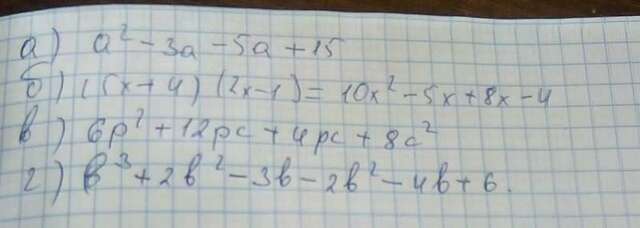 а) a² - 3a - 5a + 15
б) (5x + 4) (2x - 1) = 10x² - 5x + 8x - 4
в) 6p² + 12pc + 4pc + 8c²
г) b³ + 2b² - 3b - 2b² - 4b + 6.